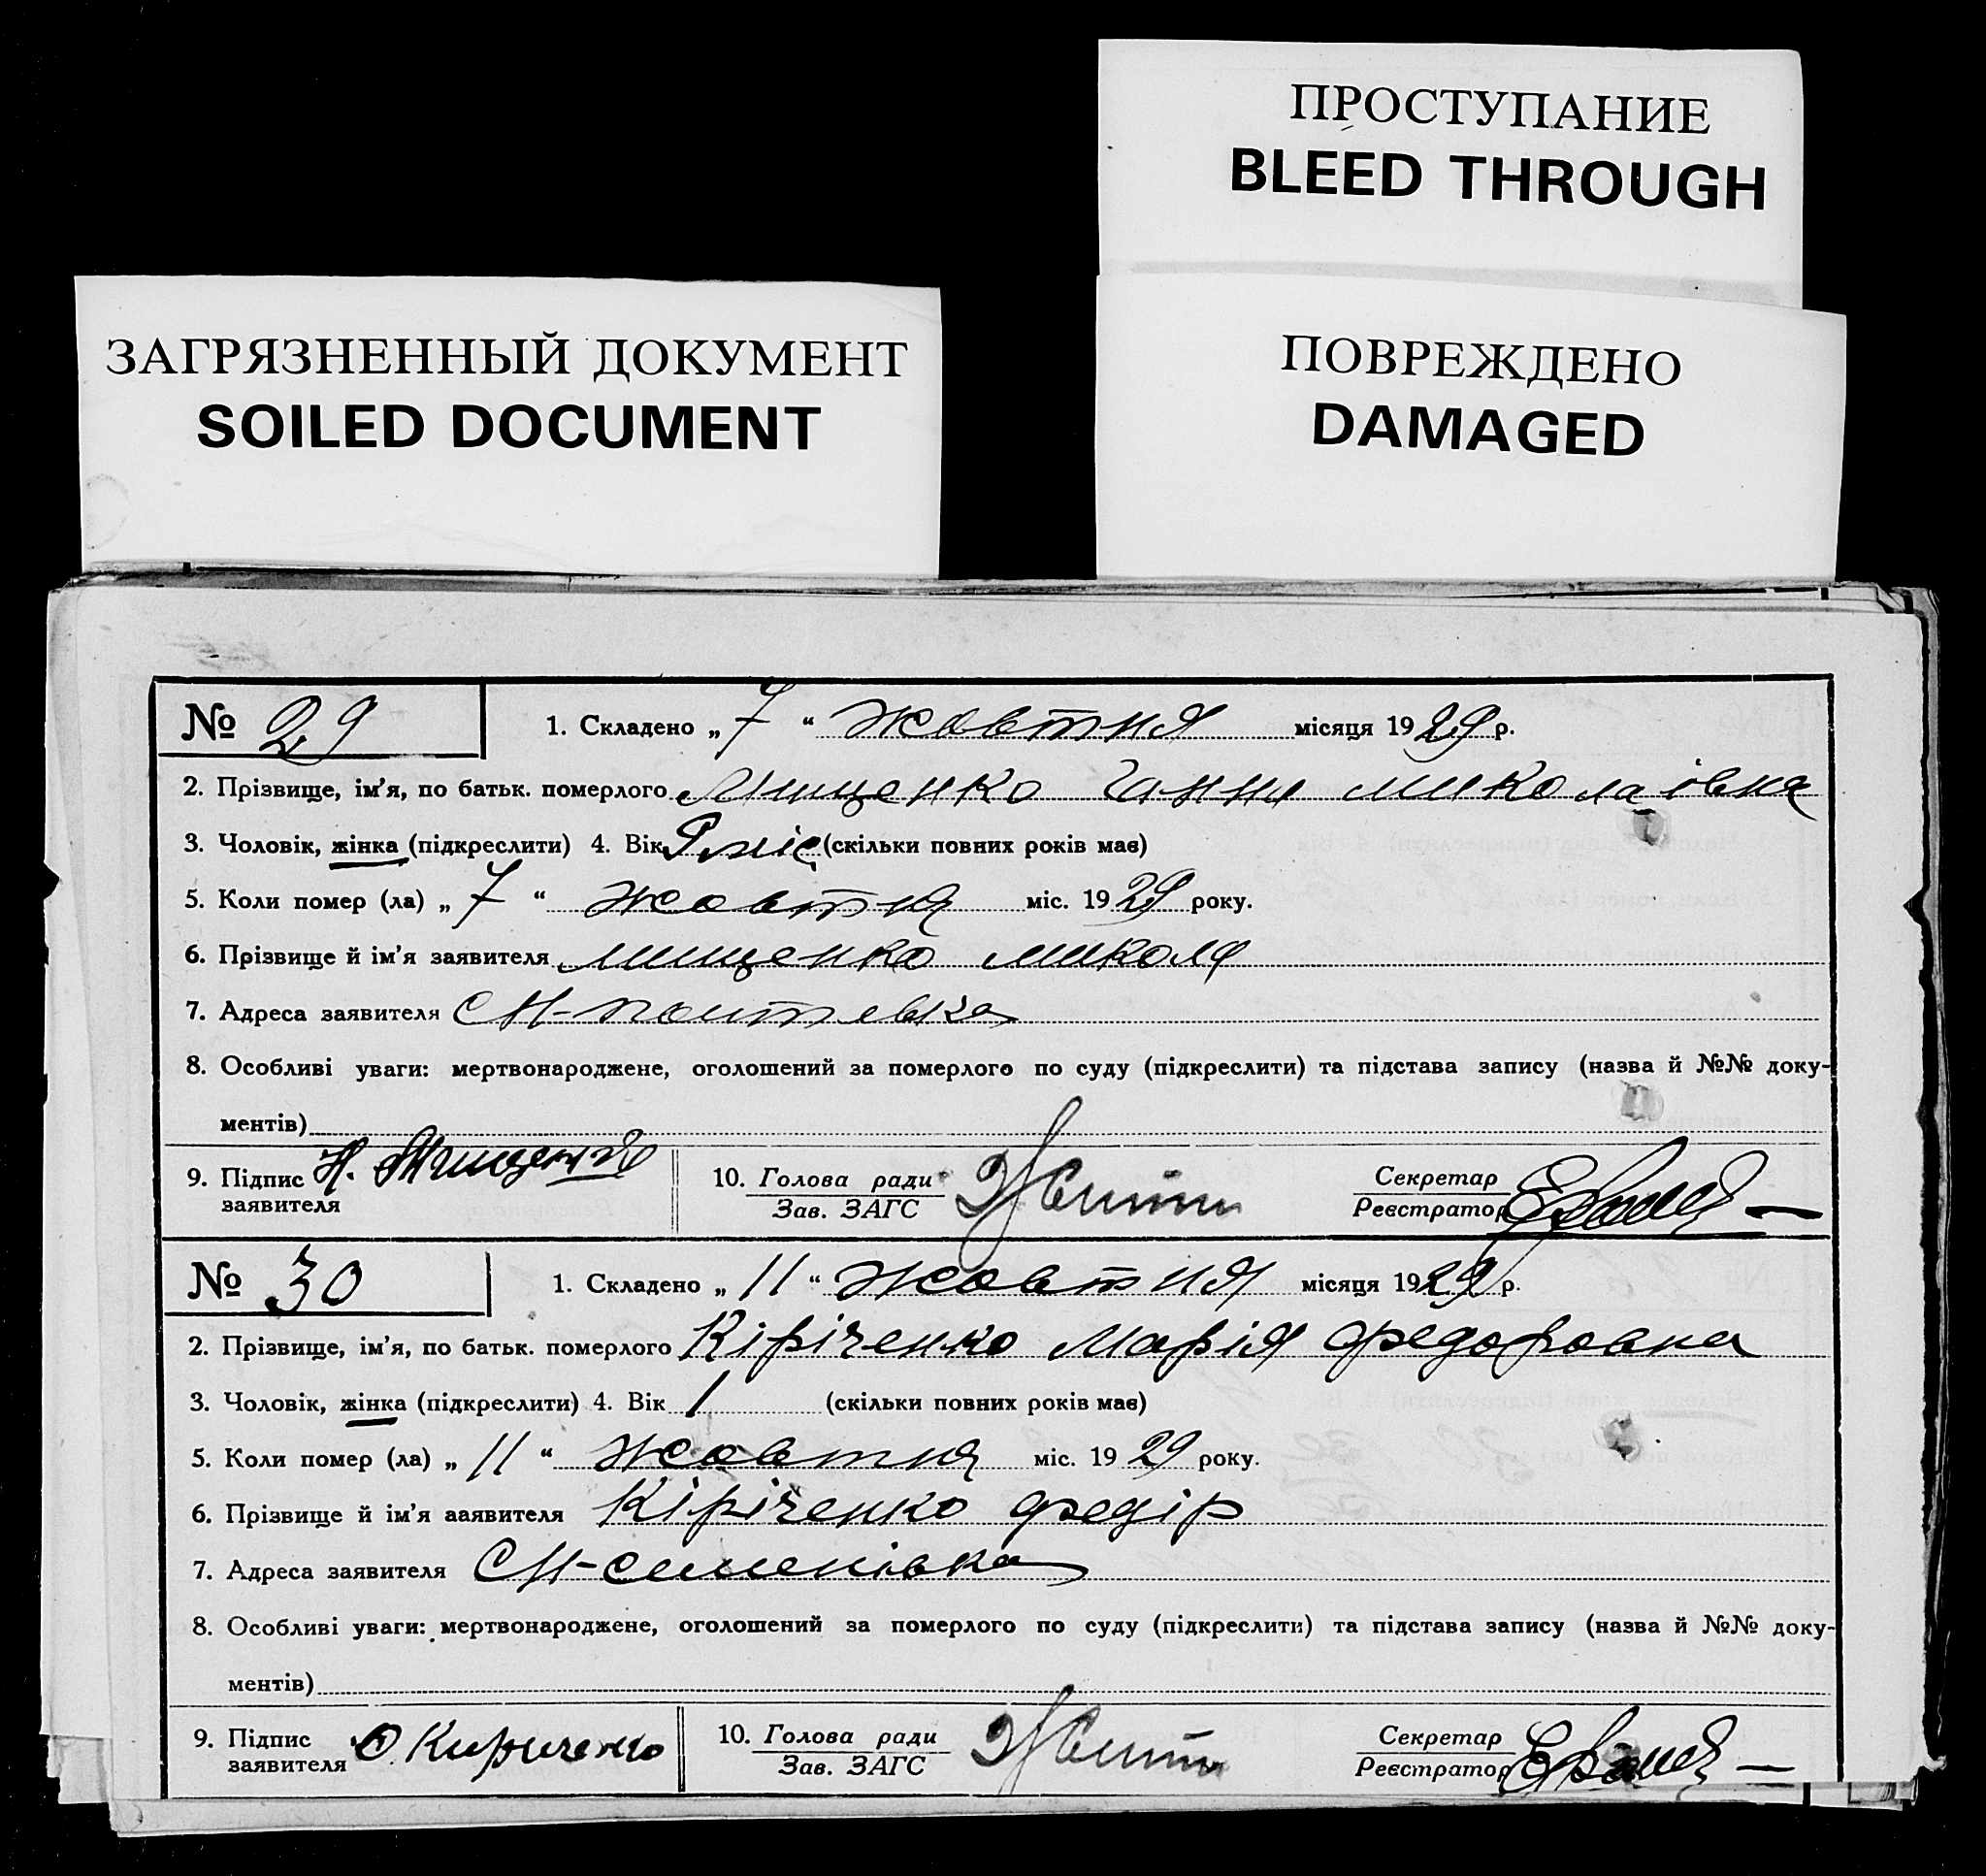 ПРОСТУПАНИЕ
BLEED THROUGH
ЗАГРЯЗНЕННЫЙ ДОКУМЕНТ
SOILED DOCUMENT
ПОВРЕЖДЕНО
DAMAGED
№ 29
1. Складено „ 7 “ жовтня місяця 1929 р.
2. Прізвище, ім’я, по батьк. померлого Мищенко Ганна Миколаівна
3. Чоловік, жінка (підкреслити) 4. Вік міс (скільки повних років має)
5. Коли помер (ла) „ 7 “ жовтня міс. 1929 року.
6. Прізвище й ім’я заявителя Мищенко Микола
7. Адреса заявителя
8. Особливі уваги: мертвонароджене, оголошений за померлого по суду (підкреслити) та підстава запису (назва й №№ доку-
ментів)
9. Підпис заявителя Н. Мищенко
10. Голова ради
Зав. ЗАГС
Секретар
Реєстратор
№ 30
1. Складено „ 11 “ жовтня місяця 1929 р.
2. Прізвище, ім’я, по батьк. померлого Кіріченко Марія Федоровна
3. Чоловік, жінка (підкреслити) 4. Вік 1 (скільки повних років має)
5. Коли помер (ла) „ 11 “ жовтня міс. 1929 року.
6. Прізвище й ім’я ааявителя Кіріченко Федір
7. Адреса заявителя СМ-семенівка
8. Особливі уваги: мертвонароджене, оголошений за померлого по суду (підкреслити) та підстава запису (назва й №№ доку-
ментів)
9. Підпис заявителя Ф. Кириченко
10. Голова ради
Зав. ЗАГС
Секретар
Реєстратор